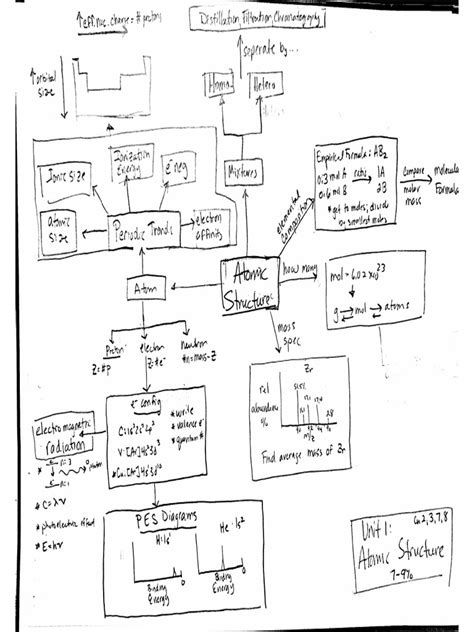 ↑eff. nuc. charge = # protons
Distillation, Filtration, Chromatography
↑ seperate by...
↑orbital
size
Homo
Hetero
Ionization
Energy
e⁻neg
Ionic size
Mixtures
atomic
size
Periodic Trends
electron
affinity
Empirical Formula: AB₂
0.3 mol A ratio 1A
0.6 mol B → 2B
*get to moles; divide
by smallest moles
compare
molar
mass
molecular
Formula
elemental
composition
Atom
Atomic
Structure
how many
mol = 6.02 x10²³
g ⇄ mol ⇄ atoms
mass
spec
Proton
Z=#p
electron
Z=#e⁻
neutron
#n=mass-Z
e⁻ config
V:[Ar]4s²3d³
*Cu:[Ar]4s¹3d¹⁰
*write
*valence e⁻
*quantum #
electromagnetic
radiation
photon
* C=λν
*photoelectric effect
*E=hν
Zr
rel
abundance
%
51.5%
17.1
17.4
2.8
M/Z
Find average mass of Zr
PES Diagrams
H:1s¹
He:1s²
Binding
Energy
Binding
Energy
Unit 1:
Ch 2,3,7,8
Atomic
Structure
7-9%